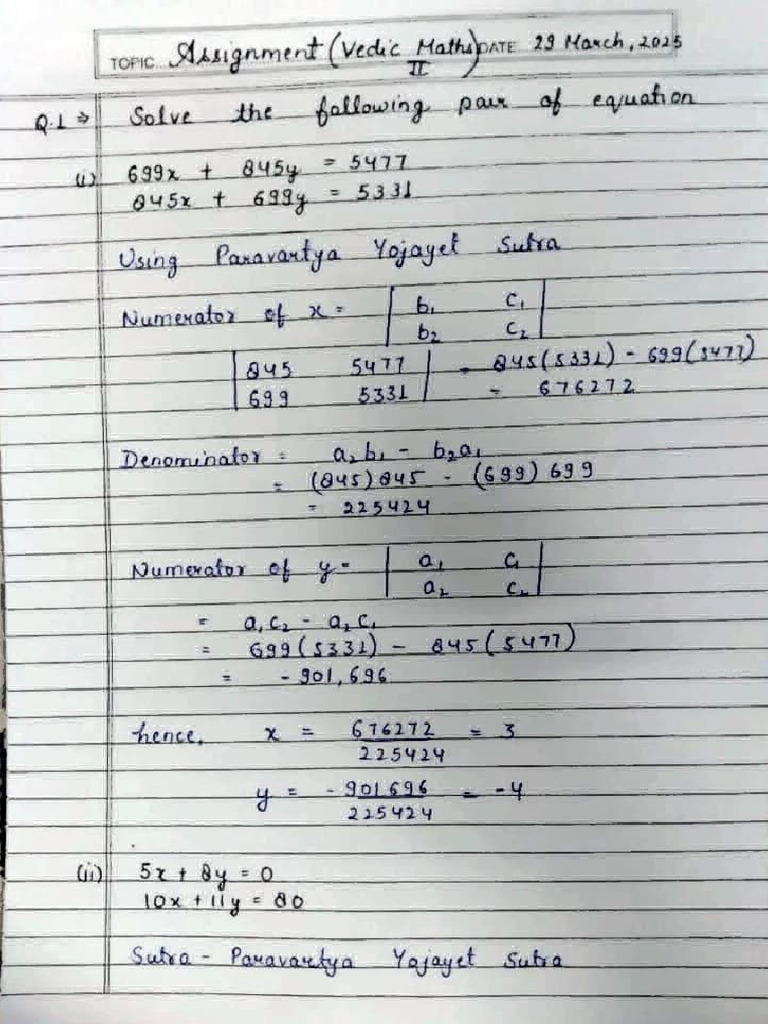 TOPIC Assignment (Vedic Maths) DATE 29 March, 2025
II
Q.1 ⇒ Solve the following pair of equation
(i) 699x + 845y = 5477
845x + 699y = 5331
Using Paravartya Yojayet Sutra
Numerator of x = | b₁ c₁ |
| b₂ c₂ |
| 845 5477 | = 845(5331) - 699(5477)
| 699 5331 | = 676272
Denominator = a₂b₁ - b₂a₁
= (845)845 - (699)699
= 225424
Numerator of y = | a₁ c₁ |
| a₂ c₂ |
= a₁c₂ - a₂c₁
= 699(5331) - 845(5477)
= -901,696
hence, x = 676272 = 3
225424
y = -901696 = -4
225424
(ii) 5x + 8y = 0
10x + 11y = 80
Sutra - Paravartya Yojayet Sutra